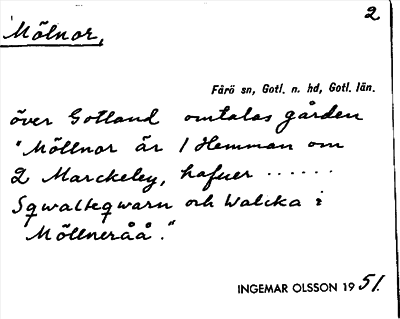 2
Mölnor,
Fårö sn, Gotl. n. hd, Gotl. län.
över Gotland omtalas gården
"Möllnor är 1 Hemman om
2 Marckeley, hafuer ......
Sqwalteqwarn och Walcka i
Möllneråå."
INGEMAR OLSSON 1951.